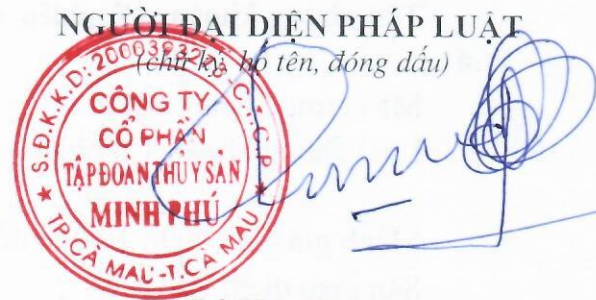 NGƯỜI ĐẠI DIỆN PHÁP LUẬT
(chữ ký, họ tên, đóng dấu)
S.Đ.K.K.D: 2000393273-C.T.C.P
CÔNG TY
CỔ PHẦN
TẬP ĐOÀN THỦY SẢN
MINH PHÚ
★ TP.CÀ MAU-T.CÀ MAU ★